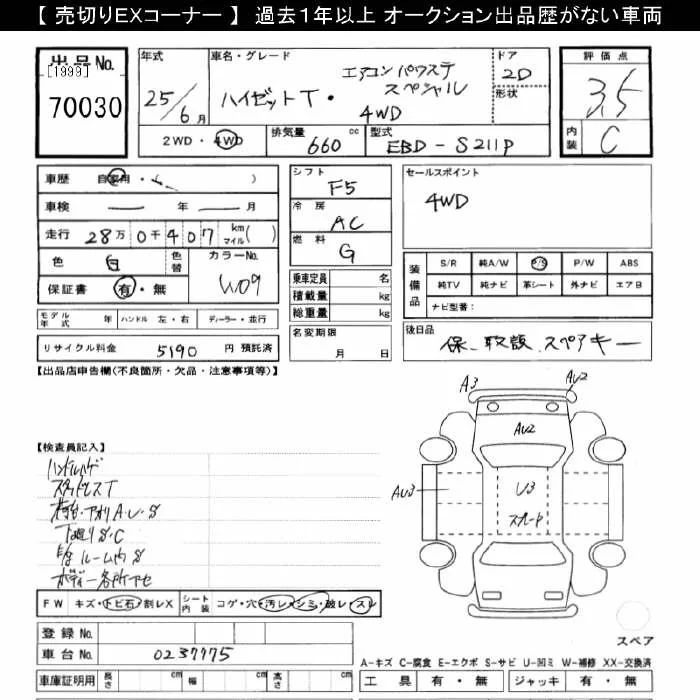 【 売切りEXコーナー 】 過去1年以上 オークション出品歴がない車両
出品No. [1999] 70030
年式 25/6月
車名・グレード ハイゼットT・ エアコンパワステ スペシャル 4WD
ドア 2D
形状
評価点 3.5
内装 C
2WD・4WD
排気量 660 cc
型式 EBD-S211P
車歴 自家用・( )
車検 年 月
走行 28万0千407 km マイル( )
色 白 色替
カラーNo. W09
保証書 有・無
モデル年式 年 ハンドル 左・右 ディーラー・並行
リサイクル料金 5190 円 預託済
シフト F5
冷房 AC
燃料 G
乗車定員 名
積載量 kg
総重量 kg
名変期限 月 日
セールスポイント
4WD
装備品 S/R 純A/W P/S P/W ABS
純TV 純ナビ 革シート 外ナビ エアB
ナビ型番:
後日品 保、取説、スペアキー
【出品店申告欄(不良箇所・欠品・注意事項等)】
【検査員記入】
ハンドルハゲ
スタッドレスT
荷台・アオリA・U・S
下廻りS・C
ルーム内S
ボディー各所
FW キズ・トビ石・割レX シート内装 コゲ・穴・汚レ・シミ・破レ・スレ
登録No.
車台No. 0237775
車庫証明用 長さ cm 幅 cm 高さ cm
A3 AU2
AU2
AU3
U3
スペード
スペア
A-キズ C-腐食 E-エクボ S-サビ U-凹ミ W-補修 XX-交換済
工具 有・無 ジャッキ 有・無